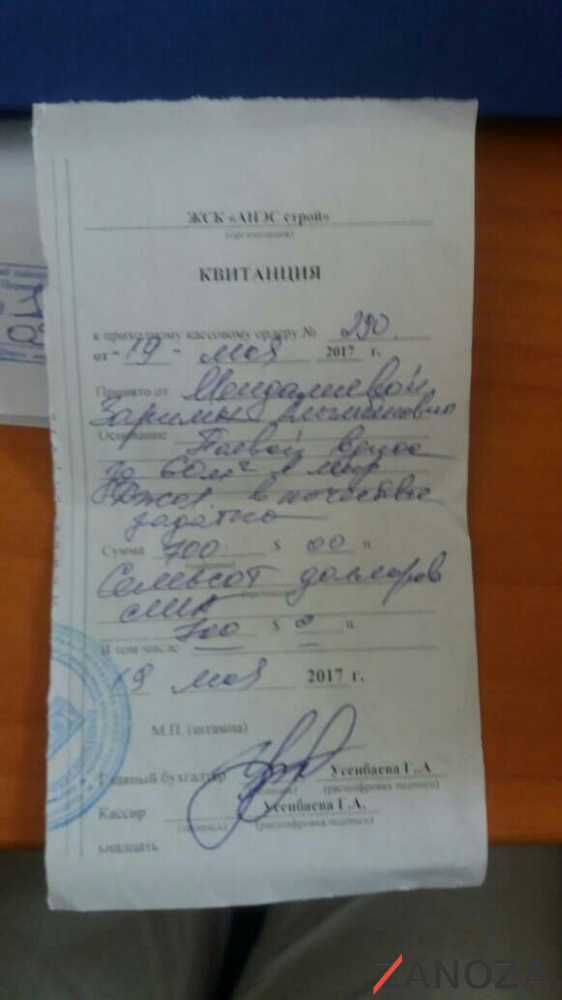 ЖСК «АНЭС строй»
(организация)
КВИТАНЦИЯ
к приходному кассовому ордеру № 290.
от "19" мая 2017 г.
Принято от
Основание Паевой взнос
за 60м² в мкр
Джал в качестве
задатка
Сумма 700 $ 00 ц
Семьсот долларов
США
700 $ 0 ц
В том числе
19 мая 2017 г.
М.П. (штампа)
Главный бухгалтер Усенбаева Г.А
(подпись) (расшифровка подписи)
Кассир Усенбаева Г.А.
(подпись) (расшифровка подписи)
ZANOZA